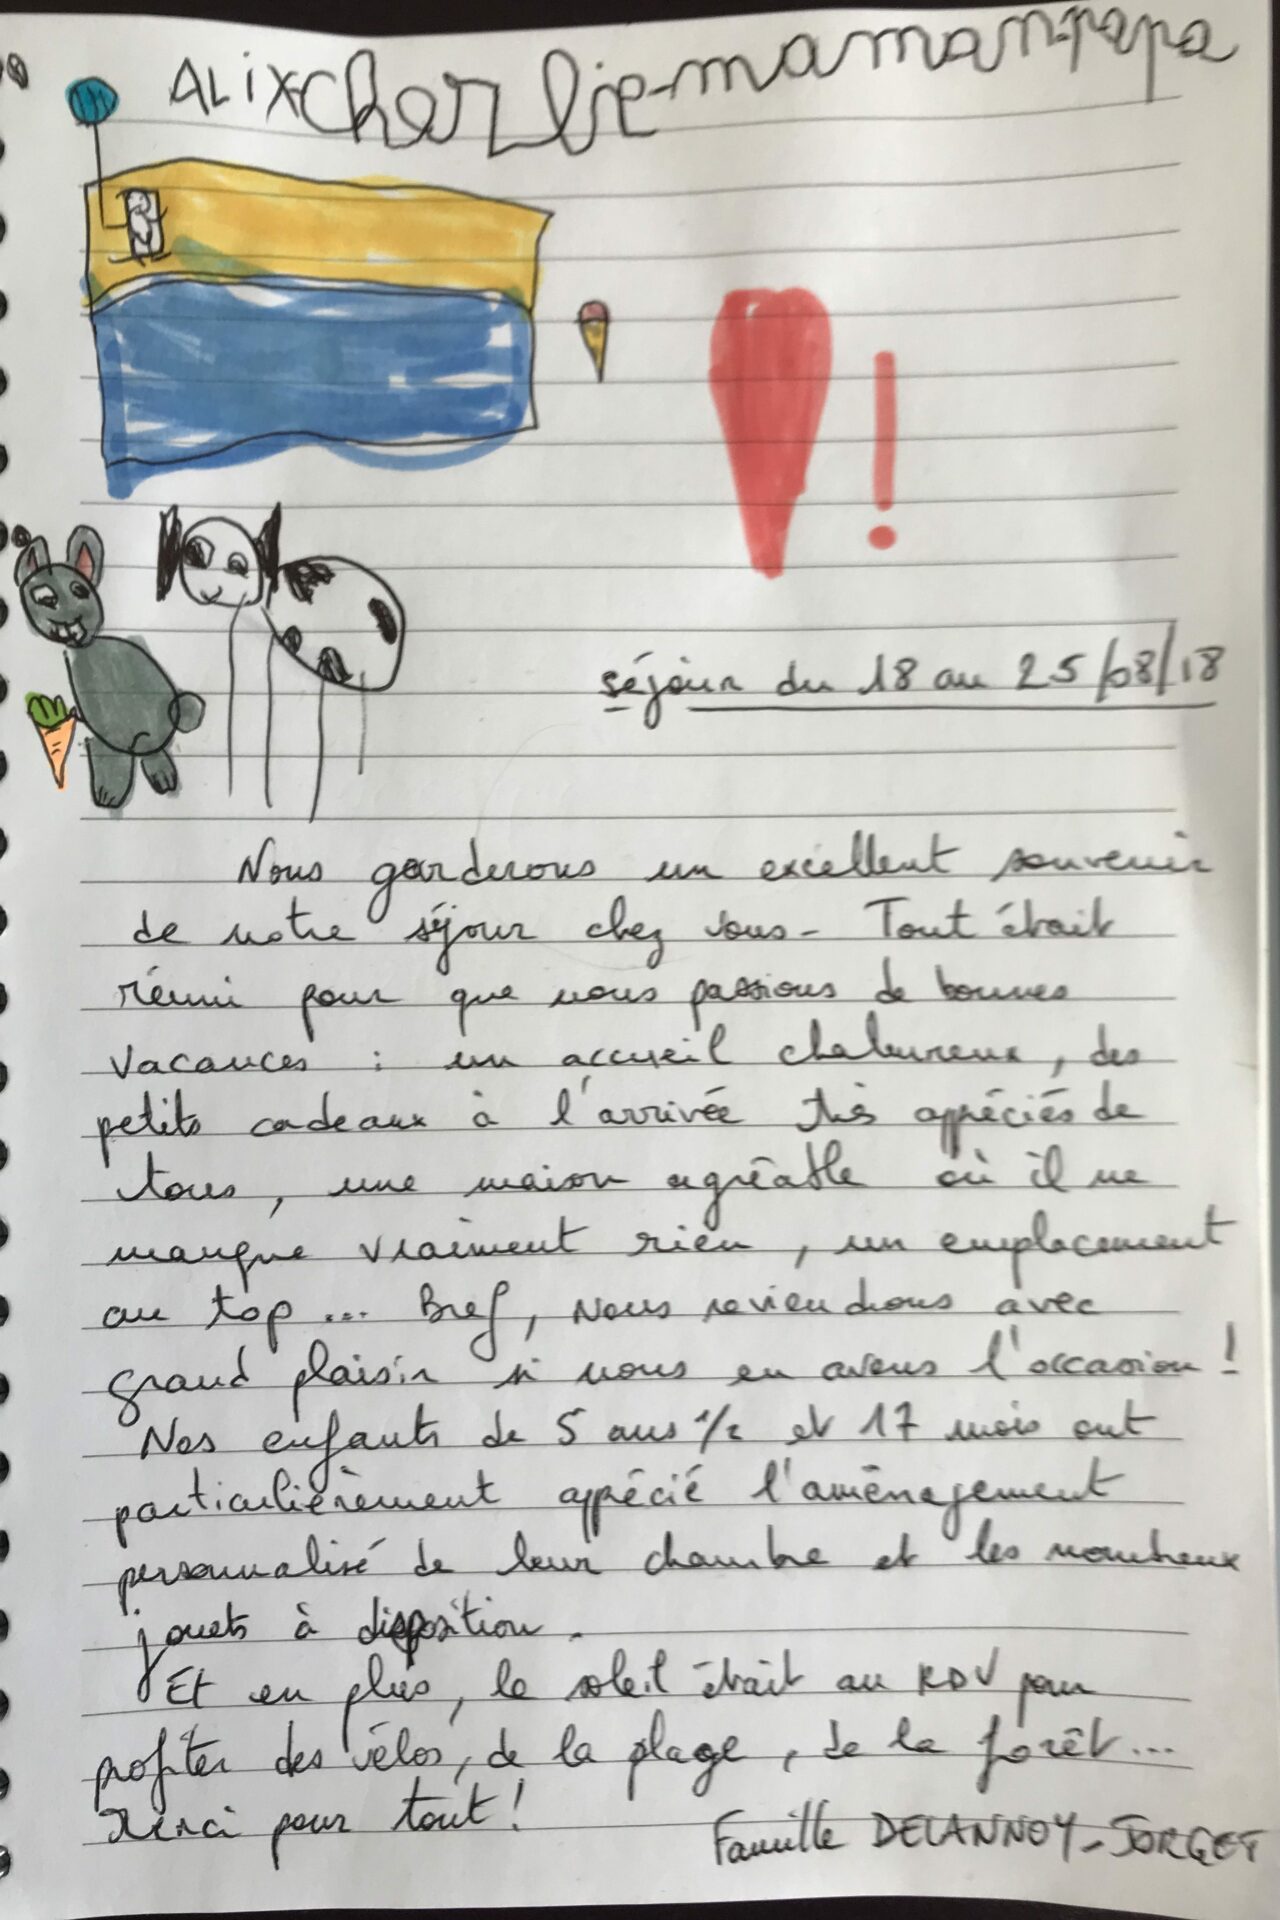 ALiX-charlie-maman-papa
!
séjour du 18 au 25/08/18
Nous garderons un excellent souvenir
de notre séjour chez vous - Tout était
réuni pour que nous passions de bonnes
vacances : un accueil chaleureux, des
petits cadeaux à l'arrivée très appréciés de
tous, une maison agréable où il ne
manque vraiment rien, un emplacement
au top ... Bref, nous reviendrons avec
grand plaisir si nous en avons l'occasion !
Nos enfants de 5 ans 1/2 et 17 mois ont
particulièrement apprécié l'aménagement
personnalisé de leur chambre et les nombreux
jouets à disposition.
Et en plus, le soleil était au RDV pour
profiter des vélos, de la plage, de la forêt...
Merci pour tout !
Famille DELANNOY - JORGET